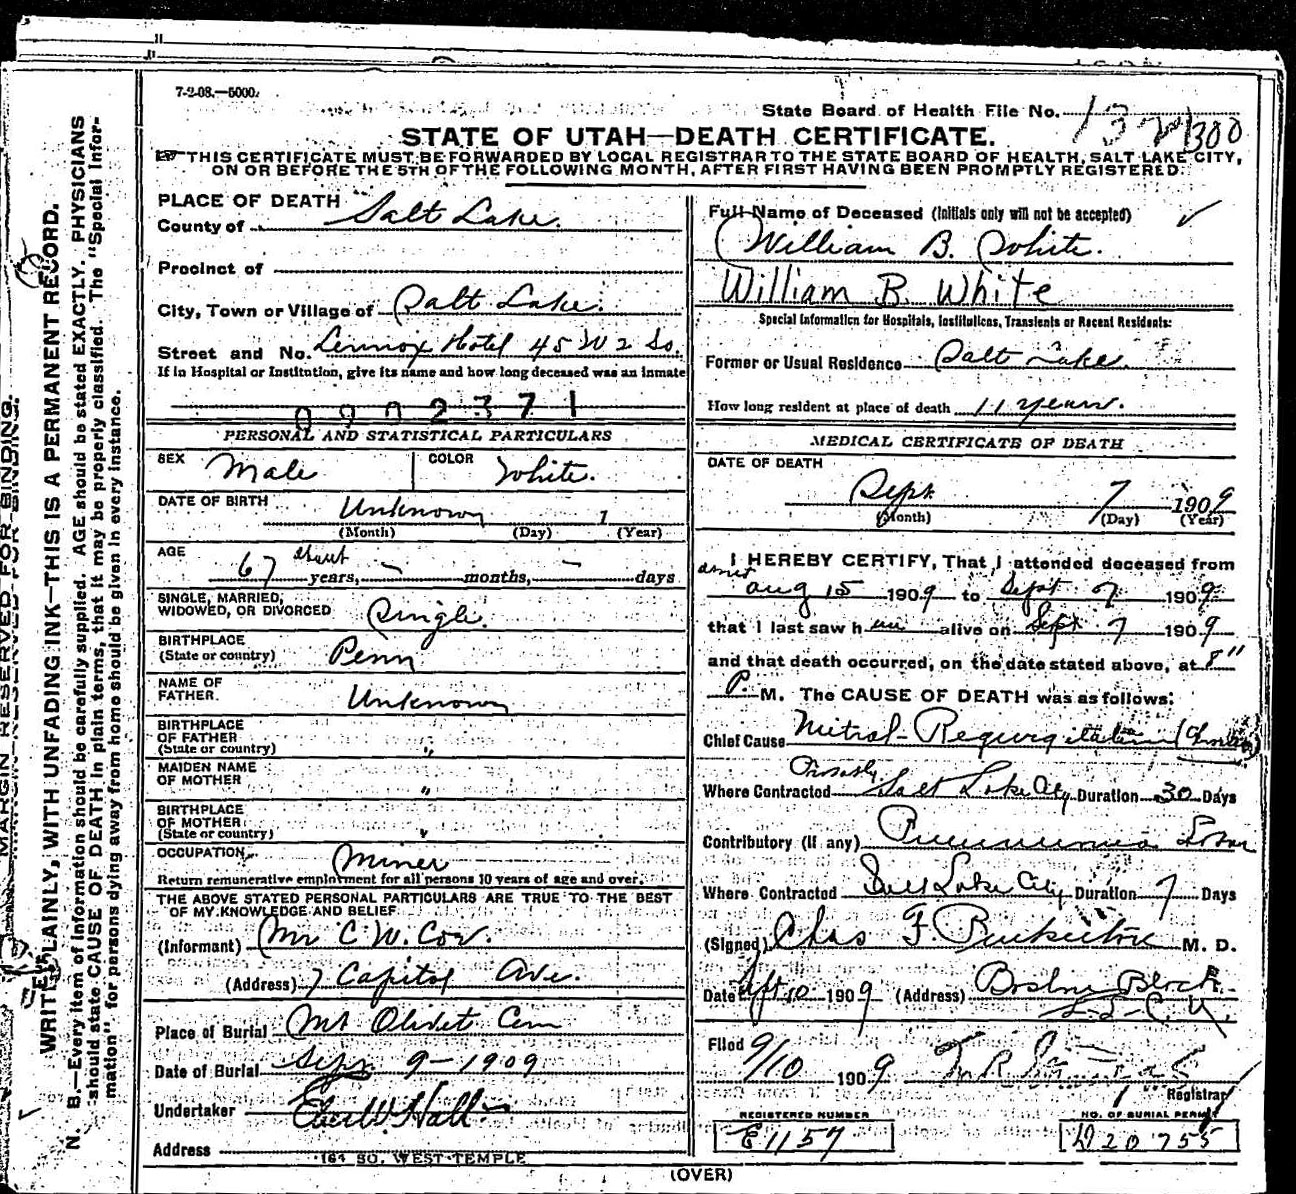 7-2-08.—5000.
State Board of Health File No. 132 1300
STATE OF UTAH—DEATH CERTIFICATE.
THIS CERTIFICATE MUST BE FORWARDED BY LOCAL REGISTRAR TO THE STATE BOARD OF HEALTH, SALT LAKE CITY,
ON OR BEFORE THE 5TH OF THE FOLLOWING MONTH, AFTER FIRST HAVING BEEN PROMPTLY REGISTERED.
MARGIN RESERVED FOR BINDING.
WRITE PLAINLY, WITH UNFADING INK—THIS IS A PERMANENT RECORD.
N. B.—Every item of information should be carefully supplied. AGE should be stated EXACTLY. PHYSICIANS
should state CAUSE OF DEATH in plain terms, that it may be properly classified. The "Special Infor-
mation" for persons dying away from home should be given in every instance.
PLACE OF DEATH
County of Salt Lake.
Precinct of
City, Town or Village of Salt Lake.
Street and No. Lennox Hotel 45 W 2 So.
If in Hospital or Institution, give its name and how long deceased was an inmate
0902371
PERSONAL AND STATISTICAL PARTICULARS
SEX Male COLOR White.
DATE OF BIRTH Unknown 1
(Month) (Day) (Year)
AGE 67 about years, — months, — days
SINGLE, MARRIED,
WIDOWED, OR DIVORCED Single.
BIRTHPLACE
(State or country) Penn
NAME OF
FATHER. Unknown
BIRTHPLACE
OF FATHER
(State or country) "
MAIDEN NAME
OF MOTHER "
BIRTHPLACE
OF MOTHER
(State or country) "
OCCUPATION Miner
Return remunerative employment for all persons 10 years of age and over.
THE ABOVE STATED PERSONAL PARTICULARS ARE TRUE TO THE BEST
OF MY KNOWLEDGE AND BELIEF
(Informant) Mr C. W. Cox.
(Address) 7 Capitol Ave.
Place of Burial Mt Olivet Cem
Date of Burial Sept 9-1909
Undertaker Eber W. Hall
Address 164 SO. WEST TEMPLE
Full Name of Deceased (Initials only will not be accepted)
William B. White.
William B. White
Special Information for Hospitals, Institutions, Transients or Recent Residents:
Former or Usual Residence Salt Lake.
How long resident at place of death 11 years.
MEDICAL CERTIFICATE OF DEATH
DATE OF DEATH
Sept 7 1909
(Month) (Day) (Year)
I HEREBY CERTIFY, That I attended deceased from
Aug 15 1909 to Sept 7 1909
that I last saw him alive on Sept 7 1909
and that death occurred, on the date stated above, at 8"
P. M. The CAUSE OF DEATH was as follows:
Chief Cause Mitral-Regurgitation (Chronic)
Where Contracted Possibly Salt Lake City Duration 30 Days
Contributory (if any) Pneumonia Lobar
Where Contracted Salt Lake City Duration 7 Days
(Signed) Chas F. Pinkerton M. D.
Date Sept 10 1909 (Address) Boston Block
S-L-C. U.
Filed 9/10 1909
Registrar
REGISTERED NUMBER
E1157
NO. OF BURIAL PERMIT
D20755
(OVER)